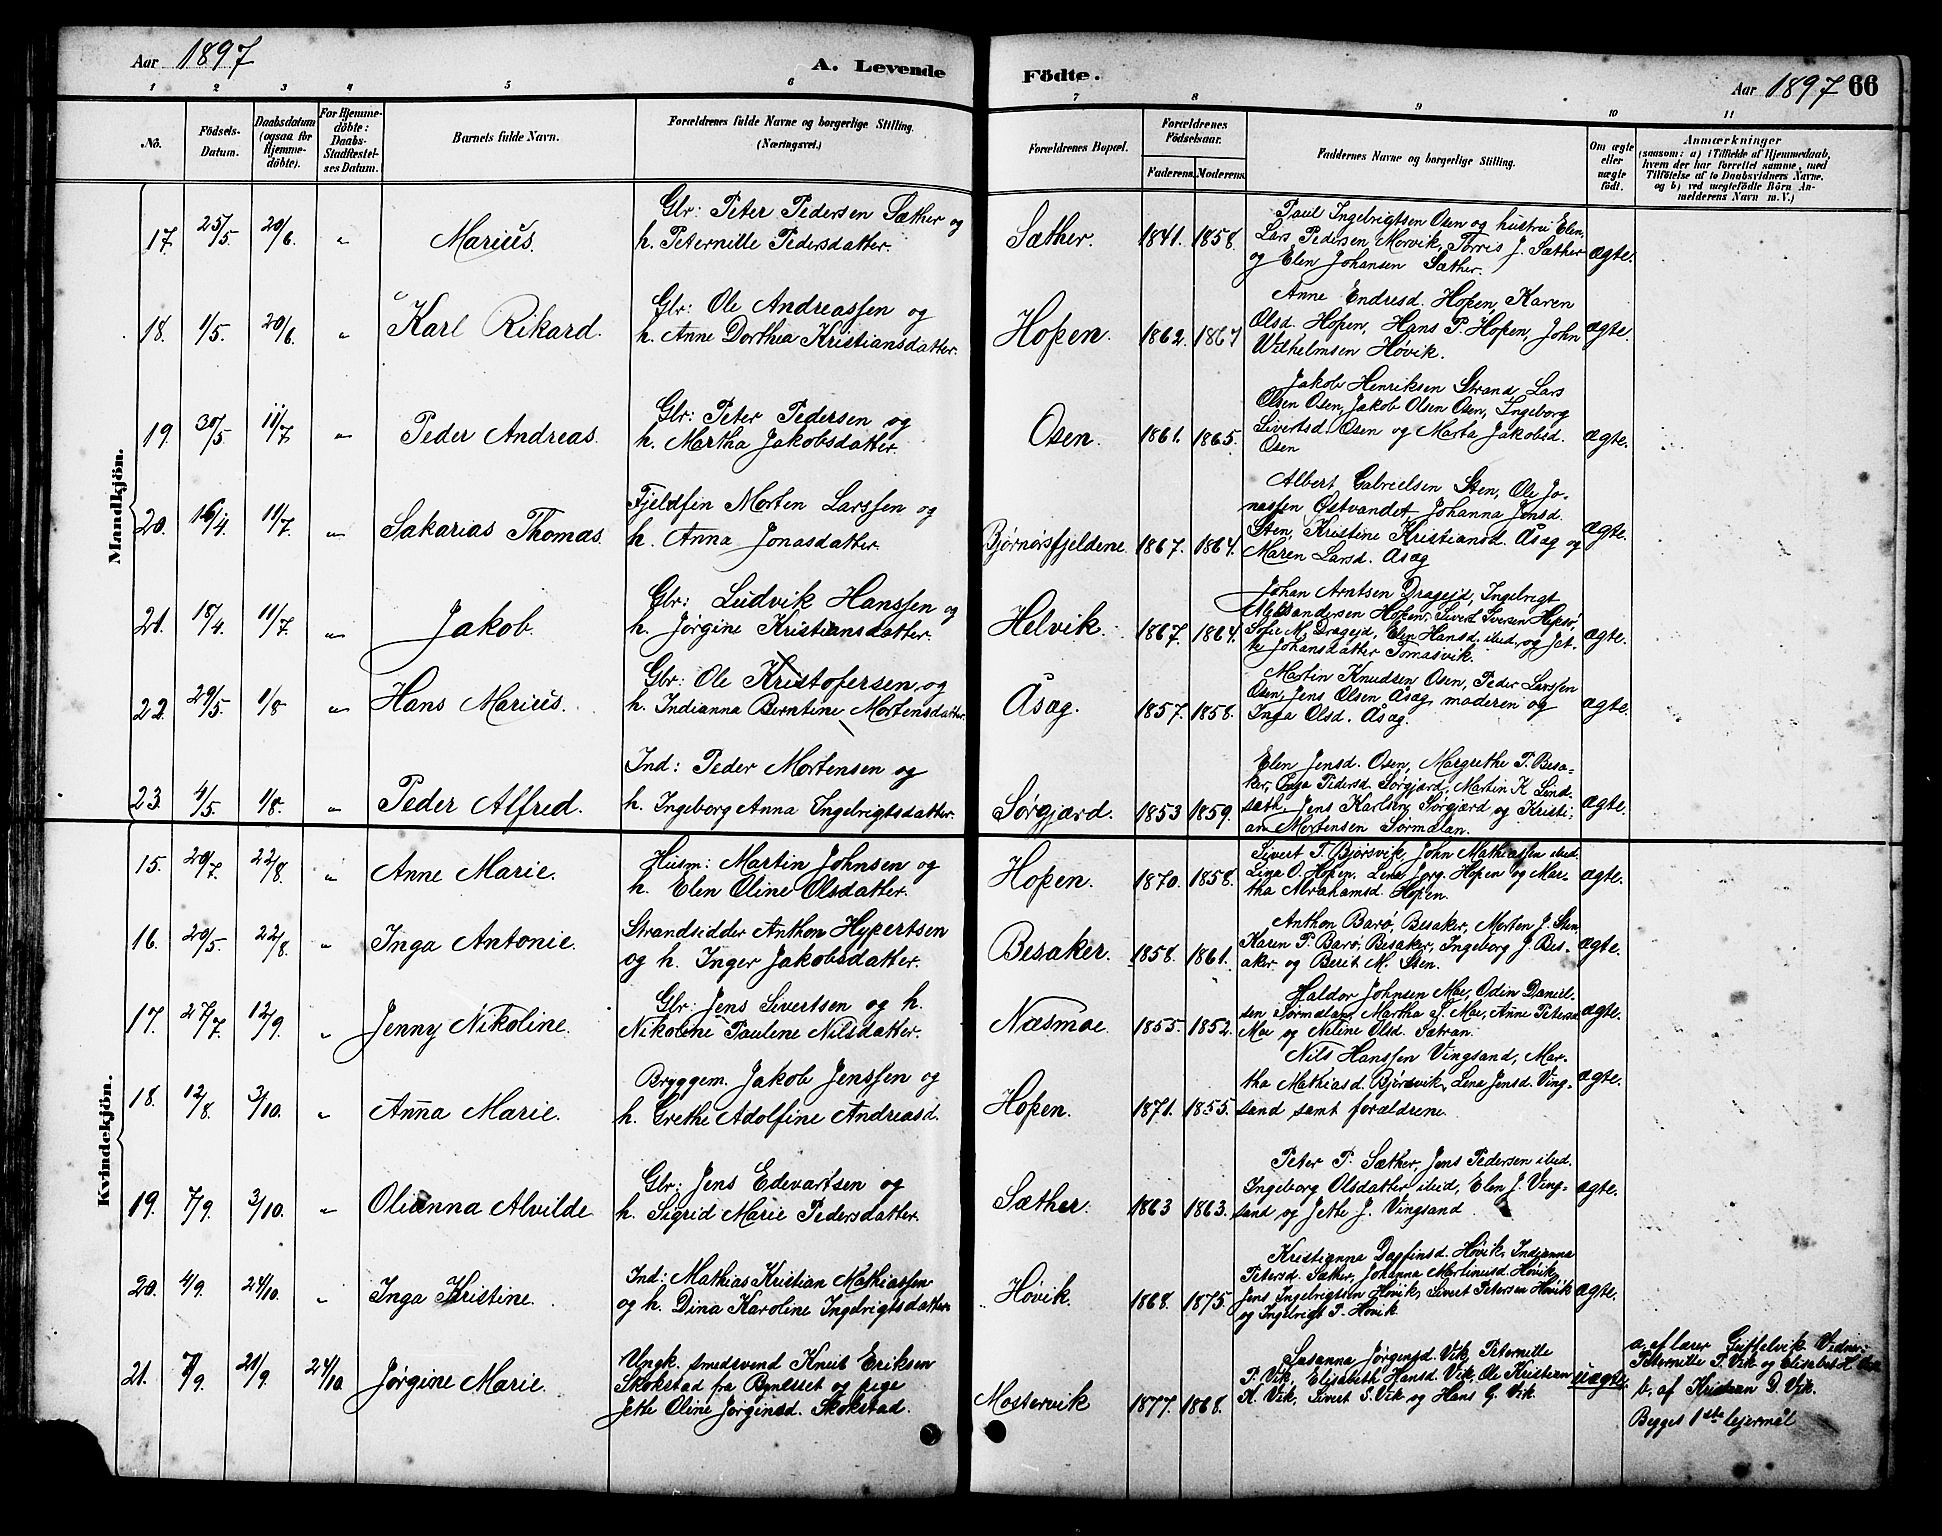 Aar 1897
A. Levende
Födte.
Aar 1897 66
1 2 3 4 5 6 7 8 9 10 11
No.
Födsels-
Datum.
Daabsdatum
(ogsaa for
Hjemme-
döbte).
For Hjemme-
döbte:
Daabs-
Stadfæstel-
ses Datum.
Barnets fulde Navn.
Forældrenes fulde Navne og borgerlige Stilling.
(Næringsvei.)
Forældrenes Bopæl.
Forældrenes
Födselsaar.
Faderens. Moderens.
Faddernes Navne og borgerlige Stilling.
Om ægte
eller
uægte
födt.
Anmærkninger
(saasom: a) i Tilfælde af Hjemmedaab,
hvem der har forrettet samme, med
Tilföielse af to Daabsvidners Navne,
og b) ved uægtefödte Börn An-
melderens Navn m. V.)
Mandkjön.
17. 25/5. 20/6. " Marius.
Glr: Peter Pedersen Sæther og
h. Peternille Pedersdatter.
Sæther. 1841. 1858.
Paul Ingebrigtsen Osen og hustru Elen,
Lars Pedersen Morvik, Torris J. Sæther
og Elen Johansen Sæther.
ægte.
18. 1/5. 20/6. " Karl Rikard.
Glr: Ole Andreassen og
h. Anne Dorthea Kristiansdatter.
Hopen. 1862. 1867
Anne Endresd. Hopen, Karen
Olsd. Hopen, Hans P. Hopen, John
Wilhelmsen Høvik.
ægte.
19. 30/5 11/7 " Peder Andreas.
Glr: Peter Pedersen og
h. Martha Jakobsdatter.
Osen. 1861. 1865.
Jakob Henriksen Strand, Lars
Olsen Osen, Jakob Olsen Osen, Ingeborg
Sivertsd. Osen og Marta Jakobsd.
Osen
ægte.
20. 16/4 11/7. " Sakarias Thomas.
Fjeldfin Morten Larssen og
h. Anna Jonasdatter.
Bjørnørsfjeldene 1867. 1864.
Albert Gabrielsen Sten, Ole Jo-
nassen Østvandet, Johanna Jonsd.
Sten, Kristine Kristiansd. Åsag og
Maren Larsd. Åsag
ægte.
21. 18/4. 11/7. " Jakob.
Glr: Ludvik Hanssen og
h. Jørgine Kristiansdatter.
Helvik. 1867. 1864.
Johan Arntsen Drageid, Ingebrigt
Aleksandersen Hopen, Sivert Iversen
Sofie M. Drageid, Elen Hansd. ibid. og Jet-
te Johansdatter Tomasvik.
ægte.
22. 29/5. 1/8 " Hans Marius.
Glr: Ole Kristofersen og
h. Indianna Berntine Mortensdatter.
Åsag. 1857. 1858.
Martin Knudsen Osen, Peder Larssen
Osen, Jens Olsen Åsag, moderen og
Inga Olsd. Åsag.
ægte.
23. 4/5. 1/8. " Peder Alfred.
Ind: Peder Mortensen og
h. Ingeborg Anna Ingebrigtsdatter.
Sørgjærd. 1853 1859.
Elen Jensd. Osen, Margrethe P. Besa-
ker, Inga Pedersd. Sørgjærd, Martin K. Lind-
sæth, Jens Karlsen Sørgjærd og Kristi-
an Mortensen Sørmælan.
ægte.
Kvindekjön.
15. 20/7 22/8. " Anne Marie.
Husm: Martin Johnsen og
h. Elen Oline Olsdatter.
Hopen. 1870. 1858.
Sivert T. Bjørsvik, John Mathiassen ibid.
Lina O. Hopen, Lena Jørg. Hopen og Mar-
tha Abrahamsd. Hopen.
ægte.
16. 20/5. 22/8. " Inga Antonie.
Strandsidder Anthon Hypertsen
og h. Inger Jakobsdatter.
Besaker. 1858. 1861.
Anthon Barø, Besaker, Morten J. Sten
Karen P. Barø, Besaker, Ingeborg J. Bes-
aker og Berit M. Sten.
ægte.
17. 27/7 12/9. " Jenny Nikoline.
Glr: Jens Sivertsen og h.
Nikoline Pauline Nilsdatter.
Næsmoe. 1855. 1852.
Haldor Johnsen Moe, Odin Daniel-
sen Sørmælan, Martha S. Moe, Anne Petersd.
Moe og Neline Olsd. Sætran.
ægte.
18. 12/8. 3/10. " Anna Marie.
Bryggem. Jakob Jenssen og
h. Grethe Adolfine Andreasd.
Hopen. 1871. 1855.
Nils Hanssen Vingsand, Mar-
tha Mathiasd. Bjørsvik, Lena Jensd. Ving-
sand samt forældrene.
ægte.
19. 7/9. 3/10. " Oleanna Alvilde
Glr: Jens Edevartsen og
h. Sigrid Marie Pedersdatter.
Sæther. 1863 1863.
Peter P. Sæther, Jens Pedersen ibid.
Ingeborg Olsdatter ibid, Elen J. Ving-
sand og Jette J. Vingsand.
ægte.
20. 4/9. 24/10. " Inga Kristine.
Ind: Mathias Kristian Mathiassen
og h. Dina Karoline Ingebrigtsdatter.
Høvik. 1868. 1875.
Kristianna Dagfinsd. Høvik, Indianna
Petersd. Sæther, Johanna Martinusd. Høvik,
Jens Ingebrigtsen Høvik, Sivert Petersen Høvik
og Ingebrigt P. Høvik.
ægte.
21. 7/9. 21/9. 24/10 Jørgine Marie.
Ungk. smedsvend Knut Eriksen
Skokstad fra Bynesset og pige
Jette Oline Jørginsd. Skokstad.
Mostervik 1877. 1868.
Susanna Jørgensd. Vik, Peternille
P. Vik, Elisabeth Hansd. Vik, Ole Kristian
H. Vik, Sivert S. Vik og Hans G. Vik.
uægte.
a, af lærer Vidner:
Peternille P. Vik og Elisabet H. Vik
b, af Kristian D. Vik.
Begges 1ste lejermål